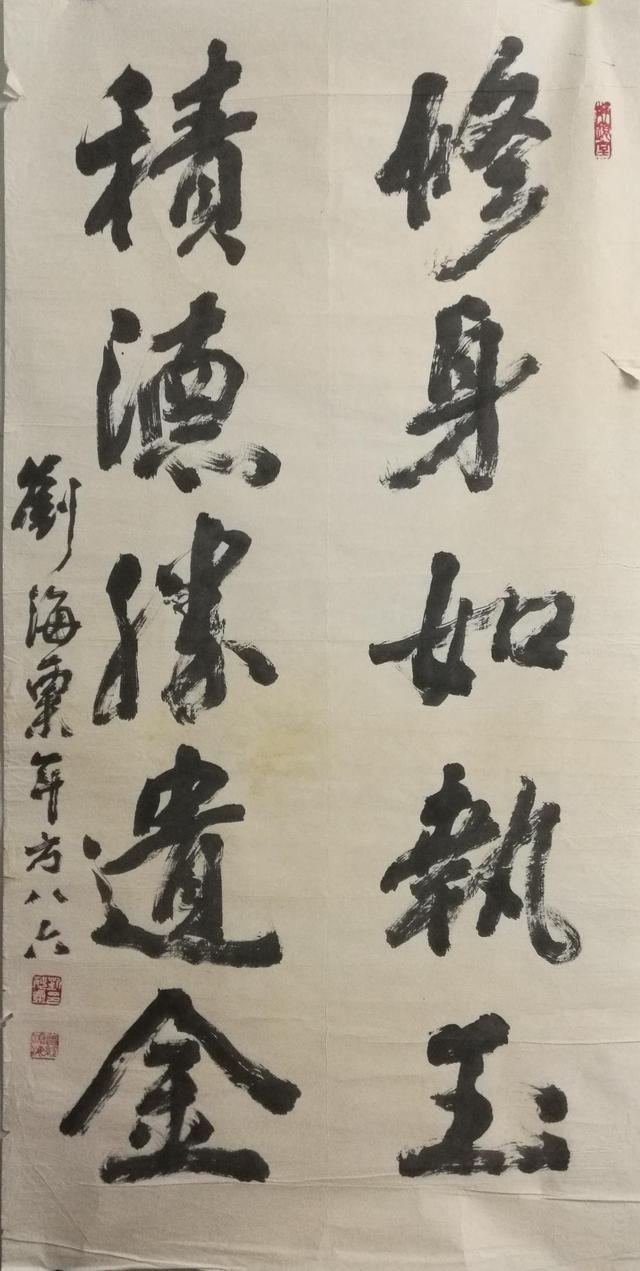 修身如執玉
積德勝遺金
劉海粟年方八六